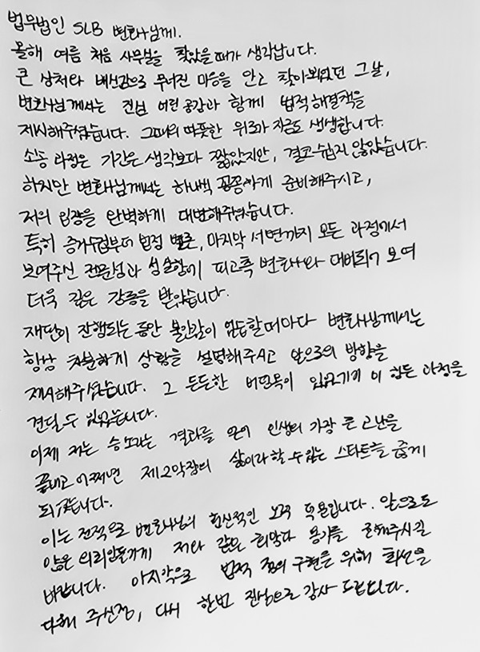 법무법인 SLB 변호사님께.
올해 여름 처음 사무실을 찾았을때가 생각납니다.
큰 상처와 배신감으로 무너진 마음을 안고 찾아뵈었던 그날,
변호사님께서는 진심 어린 공감과 함께 법적해결책을
제시해주셨습니다. 그때의 따뜻한 위로가 지금도 생생합니다.
소송 과정은 기간은 생각보다 짧았지만, 결코 쉽지 않았습니다.
하지만 변호사님께서는 하나씩 꼼꼼하게 준비해주시고,
저의 입장을 완벽하게 대변해주셨습니다.
특히 증거수집부터 법정 변론, 마지막 서면까지 모든 과정에서
보여주신 전문성과 성실함이 피고측 변호사와 대비되게 보여
더욱 깊은 감동을 받았습니다.
재판이 진행되는 동안 불안감이 엄습할때마다 변호사님께서는
항상 차분하게 상황을 설명해주시고 앞으로의 방향을
제시해주셨습니다. 그 든든한 버팀목이 있었기에 이 힘든 과정을
견딜 수 있었습니다.
이제 저는 승소라는 결과를 얻어 인생의 가장 큰 고난을
끝내고 어쩌면 제2막장의 삶이라 할 수 있는 스타트를 끊게
되었습니다.
이는 전적으로 변호사님의 헌신적인 노력 덕분입니다. 앞으로도
많은 의뢰인들에게 저와 같은 희망과 용기를 전해주시길
바랍니다. 마지막으로 법적 정의 구현을 위해 최선을
다해 주신점, 다시 한번 진심으로 감사 드립니다.